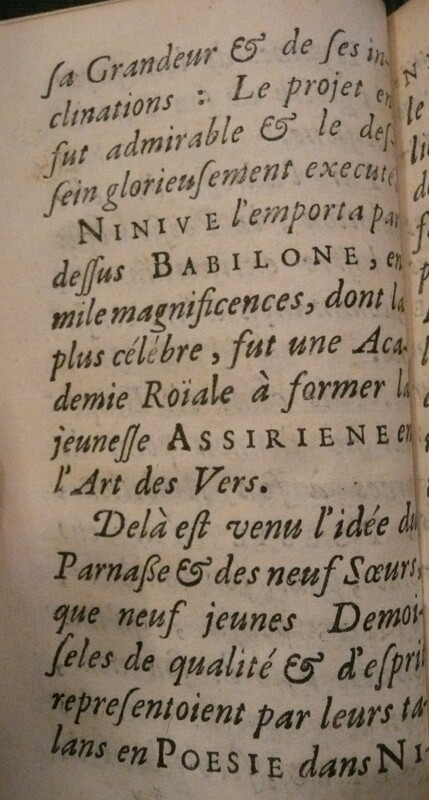 ſa Grandeur & de ſes in-
clinations : Le projet en
fut admirable & le deſ-
ſein glorieuſement executé
NINIVE l'emporta par
deſſus BABILONE, en
mile magnificences, dont la
plus célébre, fut une Aca-
demie Roïale à former la
jeuneſſe ASSIRIENE en
l'Art des Vers.
Delà eſt venu l'idée du
Parnaſſe & des neuf Sœurs,
que neuf jeunes Demoi-
ſeles de qualité & d'eſprit
repreſentoient par leurs ta-
lans en POESIE dans NI-